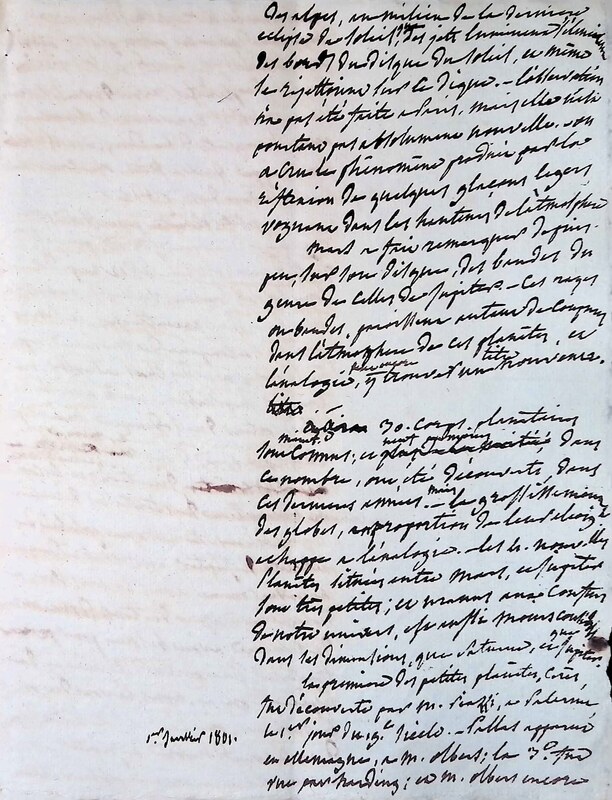 des alpes, au milieu de la derniere
eclipse de soleil, des jets lumineux
des bords du disque du soleil, et même
sur ce disque. - l'observation
n'a pas été faite a Paris, mais elle
pourtant pas absolument nouvelle. on
a cru le phénomène produit par la
réflexion de quelques glaçons legers
voguant dans les hauteurs de l'atmosphère
mars a fait remarquer depuis
peu, sur son disque, des bandes du
genre de celles de Jupiter. - Ces
ou bandes, paroissent autour de
dans l'atmosphère de ces planètes, et
l'analogie, y trouve un nouveau
titre
30. corps planétaires
sont connus; et
ce nombre, ont été découverts dans
ces dernieres années. - mais le grossissement
des globes, a proportion de leur
echappe a l'analogie. - les nouvelles
Planètes situées entre mars, et Jupiter
sont très petites; et uranus aux confins
de notre univers, est aussi moins
dans les dimensions, que Saturne, et que Jupiter
la premiere des petites planètes, Cérès,
fut découverte par m. Piazzi, a Palerme
le 1er jour du 19e siecle. - Pallas apparut
1er Janvier 1801.
en allemagne, a m. olbers; la 3e. fut
vue par harding; et m. olbers encore